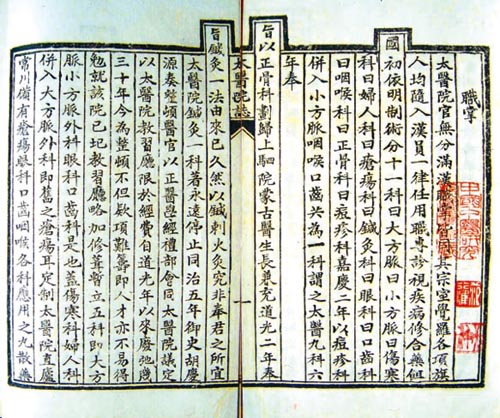 職掌
太醫院官無分滿漢職掌皆同其宗室覺羅各項旗
人均隨入漢員一律任用職專診視疾病修合藥餌
國初依明制術分十一科曰大方脈曰小方脈曰傷寒
科曰婦人科曰瘡瘍科曰鍼灸科曰眼科曰口齒科
曰咽喉科曰正骨科曰痘疹科嘉慶二年以痘疹科
併入小方脈咽喉口齒共為一科謂之太醫九科六
年奉
旨以正骨科劃歸上駟院蒙古醫生長兼充道光二年奉
太醫院志
一
旨鍼灸一法由來已久然以鍼刺火灸究非奉君之所宜
太醫院鍼灸一科著永遠停止同治五年御史胡慶
源奏整頓醫官以正醫學經禮部會同太醫院議定
以太醫院教習廳限於經費自道光年以來廢弛幾
三十年今為整頓不但款項難籌即人才亦不易得
勉就該院已圯教習廳略加修葺暫立五科即大方
脈小方脈外科眼科口齒科是也蓋傷寒科婦人科
併入大方脈外科即舊之瘡瘍耳定制太醫院直廬
常川備有瘡瘍眼科口齒咽喉各科應用之丸散藥